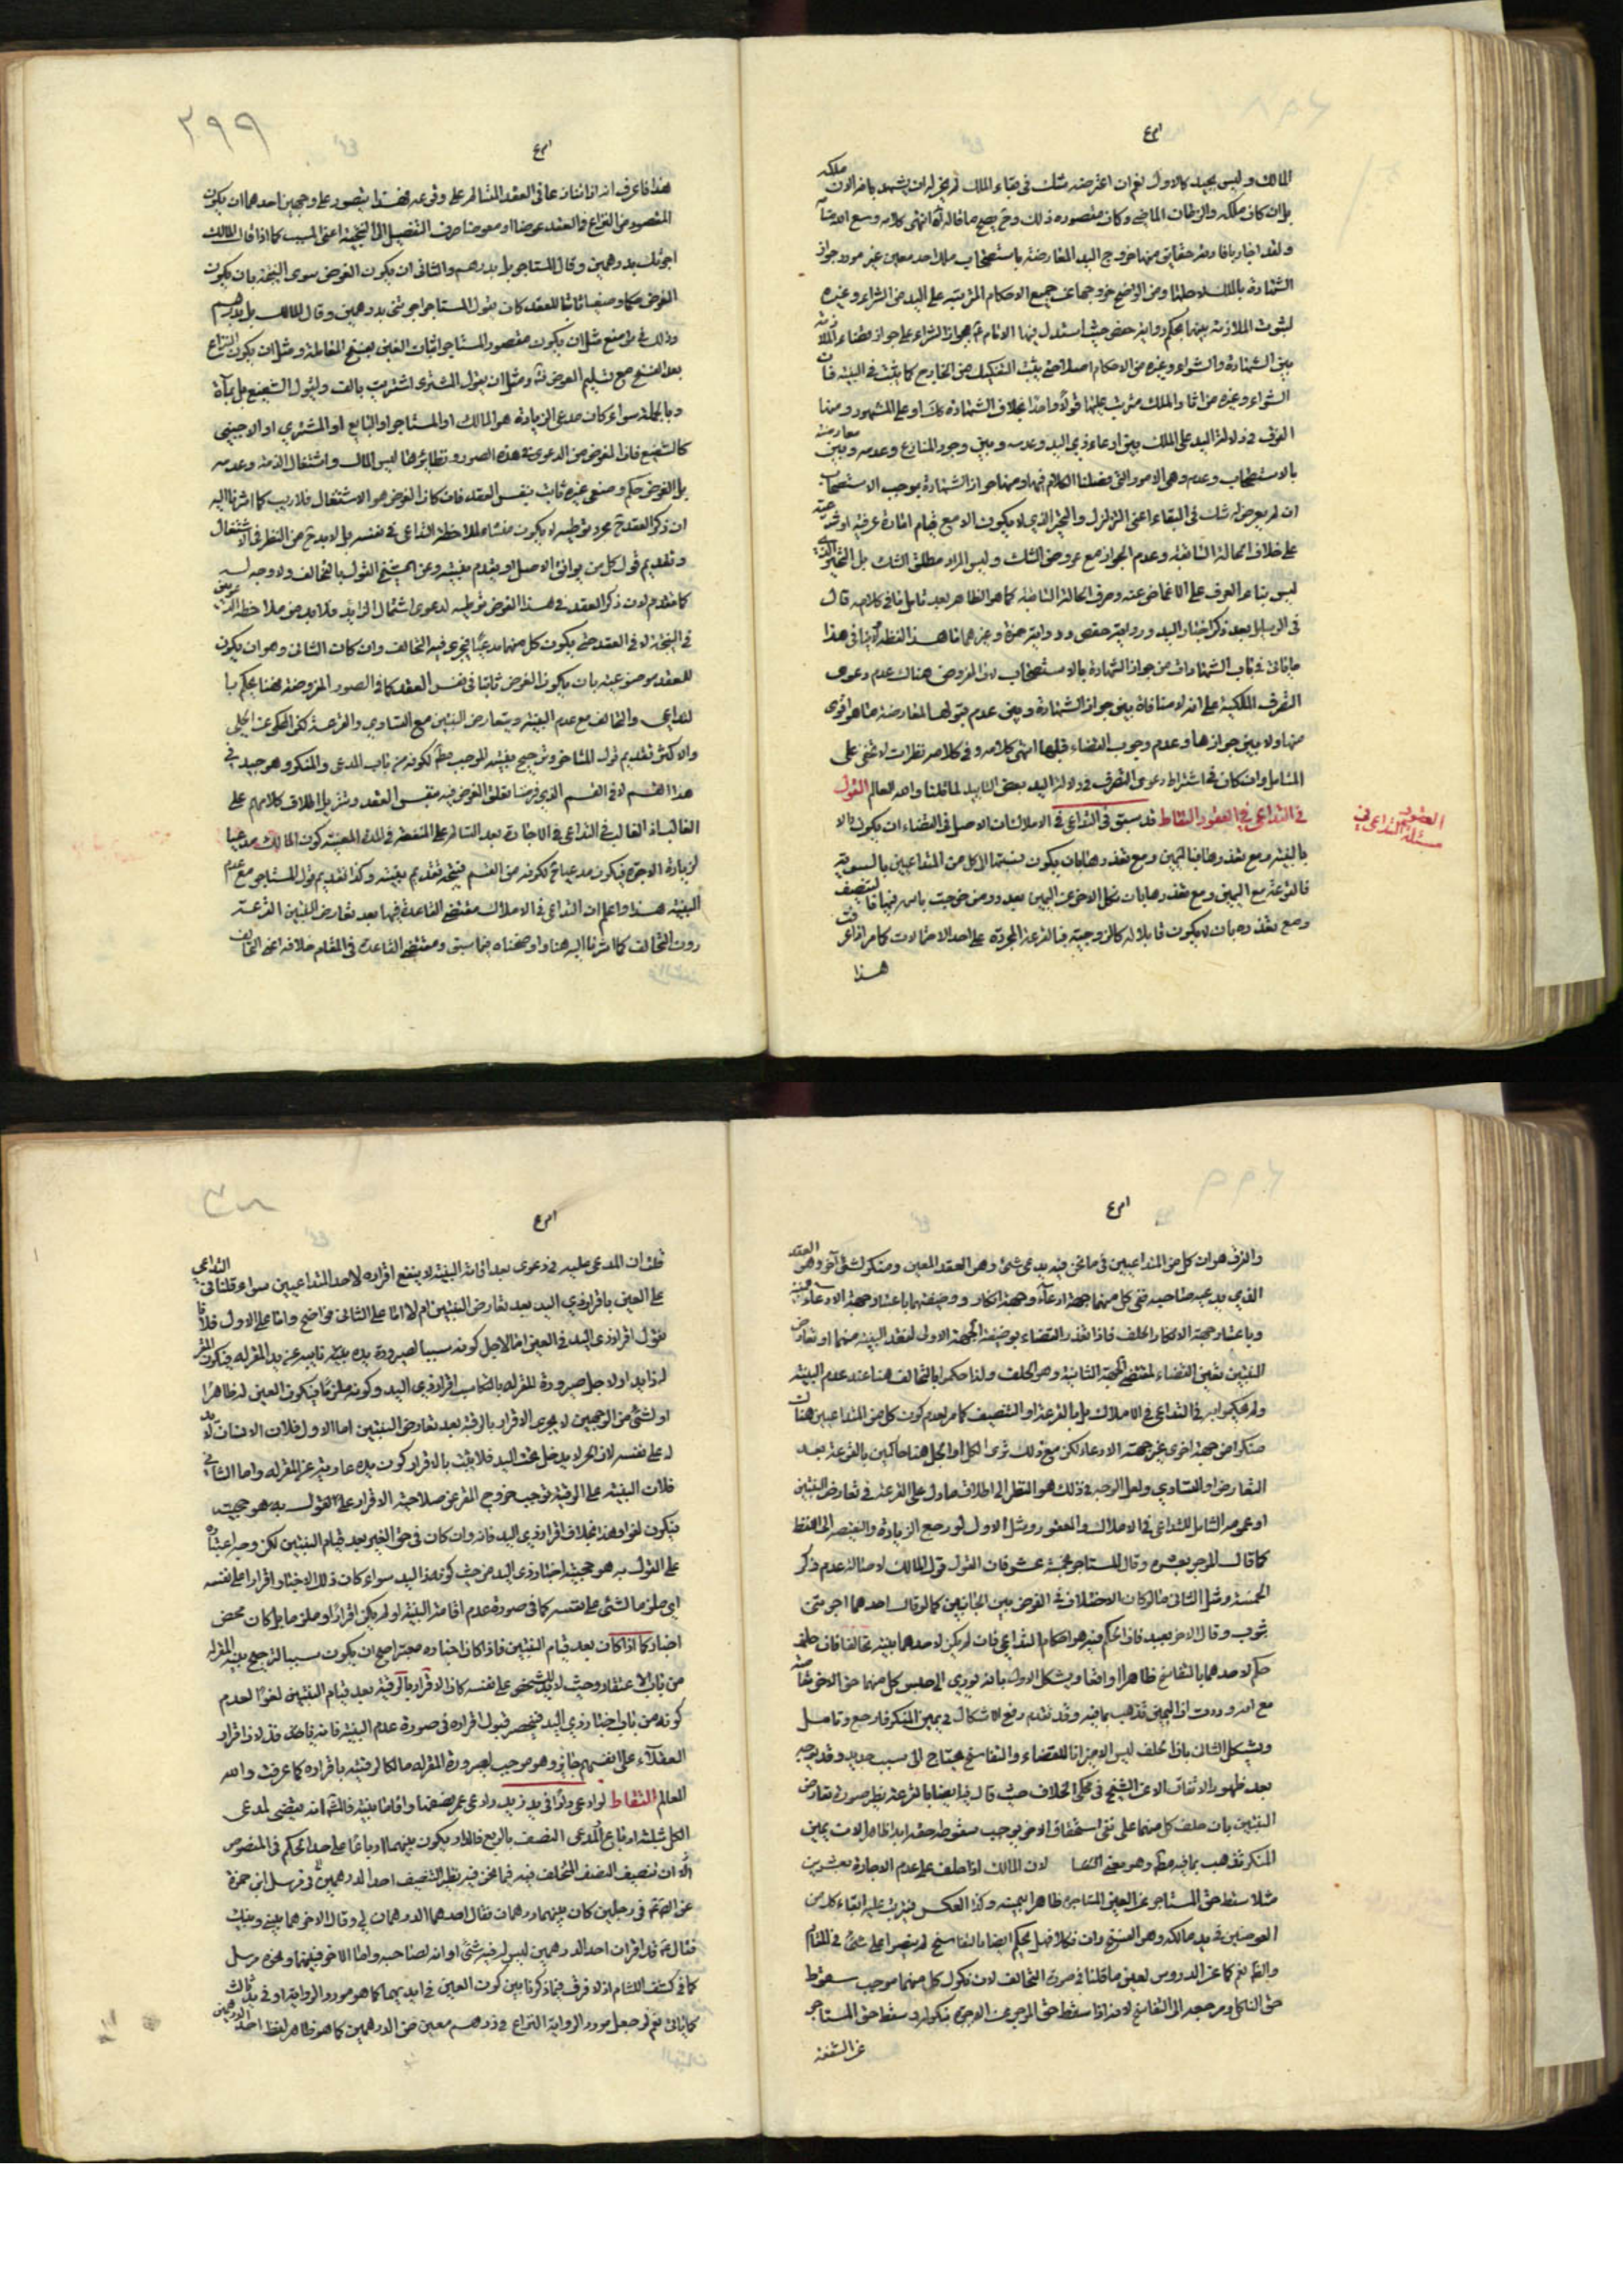 المالك وليس بجيد كالاول نعم ان اعترضه شك في بقاء الملك لم يجز له ان يشهد بانه الان ملكه
بل ان كان ملكه في الزمان الماضي وكان مقصوده ذلك وح يصح ما قاله ره انتهى كلامه
ولقد اجاد بافادته حقايق منها خروج اليد المعارضة باستصحاب ملك احد معين عن مورد جواز
الشهادة بالملك لاجلها ومن الواضح خروجها عن جميع الاحكام المترتبة على اليد من الشراء وغيره
لثبوت الملازمة بينها بحكم رواية حفص حيث استدل فيها الامام ع بجواز الشراء على جواز
بين الشهادة والشراء وغيره من الاحكام اصلا حتى يثبت التفكيك من الخارج كما يثبت في البينة فان
الشراء وغيره من اثار الملك مترتب عليها قولا واحدا بخلاف الشهادة
الفرق في دلالة اليد على الملك بين ادعاء ذي اليد وعدمه وبين وجود المنازع وعدمه وبين معارضته
بالاستصحاب وعدمه وهي الامور التي فصلنا الكلام فيها ومنها جواز الشهادة بموجب الاستصحاب
ان لم يعرض له شك في البقاء اعني التزلزل والتحير الذي لا يكون الا مع قيام امارة عرفية او شرعية
على خلاف الحالة السابقة وعدم الجواز مع عروض الشك وليس المراد مطلق الشك بل التحير
ليس بناء العرف على الاغماض عنه وصرف الحالة السابقة كما هو الظاهر بعد تامل ما في كلامه قال
في الوسايل بعد ذكر اخبار اليد ورواية حفص ورواية حمزة وغيرهما ما هذا لفظه لا ينافي هذا
ما ياتي في باب الشهادات من جواز الشهادة بالاستصحاب لان المفروض هناك عدم دعوى
التصرف الملكية على انه لا منافاة بين جواز الشهادة وبين عدم قبولها لمعارضة ما هو اقوى
منها ولا بين جوازها وعدم وجوب القضاء قبلها انتهى كلامه وفي كلامه نظرات لا تخفى على
المتامل وان كان في اشتراط دعوى التصرف في دلالة اليد بعض التاييد لما قلنا والله العالم القول
في التداعي في العقود التقاط قد سبق في التداعي في الاملاك ان الاصل في القضاء ان يكون اولا
بالبينة ومع تعذرها فباليمين ومع تعذرها بان يكون نسبتها الى كل من المتداعيين بالسوية
فالقرعة مع اليمين ومع تعذرها بان نكل الاخر عن اليمين بعد رد من خرجت باسمه فيها فالتنصيف
ومع تعذره بان لا يكون قابلا له كالزوجية فبالقرعة المجردة على احد الاحتمالات كما مر اذا عرفت
هذا
مسئلة التداعي في العقود
٢٩٩
هذا فاعرف انه اذا تداعيا في العقد المتسالم على وقوعه فهذا يتصور على وجهين احدهما ان يكون
المقصود من النزاع في العقد عوضا او معوضا صرف التوصل الى النتيجة اعني المسبب كما اذا قال المالك
اجرتك بدرهمين وقال المستاجر بل بدرهم والثاني ان يكون الغرض سوى النتيجة بان يكون
الغرض حكما وضعيا ثابتا للعقد كان يقول المستاجر اجرتني بدرهمين وقال المالك بل بدرهم
وذلك في مواضع مثل ان يكون مقصود المستاجر اثبات الغبن بفسخ المعاملة ومثل ان يكون النزاع
بعد الفسخ مع تسليم العوض ومثل ان يقول المشتري اشتريت بالف ويقول الشفيع بل بمأة
وبالجملة سواء كان مدعي الزيادة هو المالك او المستاجر او البايع او المشتري او الاجنبي
كالشفيع فاذا الغرض من الدعوى في هذه الصور ونظايرها ليس المال واشتغال الذمة وعدمه
بل الغرض حكم وضعي غيره ثابت بنفس العقد فان كان الغرض هو الاشتغال فلا ريب كما اشرنا اليه
ان ذكر العقد ح مجرد توطية لا يكون منشا لملاحظة التداعي في نفسه بل لا بد ح من النظر في الاشتغال
وتقديم قول كل من يوافق الاصل او يقدم بينته وعن الشيخ القول بالتحالف ولا وجه له
كما تقدم لان ذكر العقد في هذا الفرض توطية لدعوى اشتغال الزايد فلا بد من ملاحظة الغرض
في النتيجة لا في العقد حتى يكون كل منهما مدعيا فيجري فيه التحالف وان كان الثاني وهو ان يكون
للعقد موضوعية بان يكون الغرض ثابتا في نفس العقد كما في الصور المفروضة فهنا يحكم با
لتداعي والتحالف مع عدم البينة ويتعارض البينتين مع التساوي والقرعة لكن المحكي عن الحلي
والاكثر تقديم قول المستاجر وترجيح بينة الموجب مط لكونه من باب المدعي والمنكر وهو جيد في
هذا القسم لا في القسم الذي فرضنا تعلق الغرض فيه بنفس العقد وتنزيل اطلاق كلامهم على
الغالب اذ الغالب في التداعي في الاجارة بعد التسالم على المنفعة في المدة المعينة كون المالك مدعيا
لزيادة الاجرة فيكون مدعيا ح لكونه من القسم فيتجه تقديم بينته وكذا تقديم قول المستاجر مع عدم
البينة هذا واعلم ان التداعي في الاملاك مقتضى القاعدة فيها بعد تعارض البينتين القرعة
دون التحالف كما اشرنا اليه هنا واوضحناه فيما سبق ومقتضى القاعدة في المقام خلافه اعني التحالف
والفرق هو ان كل من المتداعيين في ما نحن فيه يدعي شيء وهو العقد المعين ومنكر لشيء آخر وهو العقد
الذي يدعيه صاحبه ففي كل منهما جهة ادعاء وجهة انكار ووظيفتهما باعتبار جهة الادعاء البينة
وباعتبار جهة الانكار الحلف فاذا تعذر القضاء بوظيفة الجهة الاولى لفقد البينة منهما او تعارض
البينتين تعين القضاء لمقتضى الجهة الثانية وهو الحلف ولذا حكموا بالتحالف هنا عند عدم البينة
ولم يحكموا به في التداعي في الاملاك بل بالقرعة او التنصيف كما مر لعدم كون كل من المتداعيين هناك
منكرا من جهة اخرى غير جهة الادعاء لكن مع ذلك نرى الكل او الجل هنا حاكمين بالقرعة بعد
التعارض او التساوي ولعل الوجه في ذلك هو النظر الى اطلاق ما دل على القرعة في تعارض البينتين
او عمومه الشامل للتداعي في الاملاك والعقود ومثل الاول لو رجع الزيادة والنقيصة الى اللفظ
كما قال الموجر بعشرة وقال المستاجر بخمسة عشر فان القول قول المالك لاصالة عدم ذكر
الخمسة ومثل الثاني ما لو كان الاختلاف في الغرض بين الجانبين كما لو قال احدهما اجرتني
بثوب وقال الاخر بعبد فان الحكم فيه هو احكام التداعي فان لم يكن لاحدهما بينة تحالفا فان حلف
حكم لاحدهما بالتفاسخ ظاهرا او واقعا ويشكل الاول بانه يؤدي الى حبس كل منهما حق الاخر
مع انه وردت ان اليمين تذهب بما فيه وقد تقدم رفع الاشكال في يمين المنكر فارجع وتامل
ويشكل الثاني بان الحلف ليس الا ميزانا للقضاء والتفاسخ يحتاج الى سبب جديد وقد يوجه
بعد ظهور الاتفاق الا عن الشيخ في محكي الخلاف حيث قال فيها ايضا بالقرعة نظير صورة تعارض
البينتين بان حلف كل منهما على نفي استحقاق الاخر يوجب سقوط حقه ابدا ظاهرا لان يمين
المنكر تذهب بما فيه مط وهو معنى القضا لان المالك اذا حلف على عدم الاجارة بعشرين
مثلا سقط حق المستاجر عن العين المستاجرة ظاهرا بيمينه وكذا العكس فيترتب عليه ابقاء كل من
العوضين في يد مالكه وهو الفسخ وان نكلا فهل يحكم ايضا بالتفاسخ لم ينصوا على شيء في المقام
والظ نعم كما عن الدروس لعين ما قلنا في صورة التحالف لان نكول كل منهما موجب سقوط
حق الناكل ومرجعه الى التفاسخ لانه اذا سقط حق الموجر عن الاجرة بنكوله وسقط حق المستاجر
عن المنفعة
٣٠٠
قلت ان المدعى عليه في دعوى بعد اقامة البينة لا ينفع اقراره لاحد المتداعيين سواء قلنا في التداعي
على العين باقرار ذي اليد بعد تعارض البينتين ام لا اما على الثاني فواضح واما على الاول فلانا
نقول اقرار ذي اليد في العين اما لاجل كونه سببا لصيرورة يده بينة نايبه عن يد المقر له فيكون المقر
له ذا يد او لاجل صيرورة المقر له بالتكاسب اقرار ذي اليد وكونه ملزما فيكون العين له ظاهرا
او لشيء من الوجهين لا يجري الاقرار بالرقية بعد تعارض البينتين اما الاول فلان الانسان لا يد
له على نفسه لان الحر لا يدخل تحت اليد فلا يثبت بالاقرار كون يده عارية عن المقر له واما الثاني
فلان البينة على الرقية توجب خروج المقر عن صلاحية الاقرار على القول به هو حجيته
فيكون لغوا وهذا بخلاف اقرار ذي اليد فانه وان كان في حق الغير بعد قيام البينتين لكن وجه اعتباره
على القول به هو حجية اخبار ذي اليد من حيث كونه ذا اليد سواء كان ذلك الاخبار اقرارا على نفسه
اي ملزما لشيء على نفسه كما في صورة عدم اقامة البينة او لم يكن اقرارا وملزما بل كان محض
اخبار كما اذا كان بعد قيام البينتين فاذا كان اخباره معتبرا صح ان يكون سببا لترجيح بينة المقر له
من باب الاعتقاد وحيث لا يد للشخص على نفسه كان الاقرار بالرقية بعد قيام البينتين لغوا لعدم
كونه من باب اخبار ذي اليد فينحصر قبول اقراره في صورة عدم البينة فانه نافذ لان اقرار
العقلاء على انفسهم جايز وهو موجب لصيرورة المقر له مالكا لرقبته باقراره كما عرفت والله
العالم التقاط لو ادعى دارا في يد زيد وادعى عمرو نصفها واقاما بينة فالمش انه يقضى لمدعي
الكل بثلثة ارباع ولمدعي النصف بالربع فالدار يكون بينهما ارباعا على حد الحكم في المنصوص
الا ان تنصيف النصف المختلف فيه فيما نحن فيه نظير التنصيف احد الدرهمين في مرسل ابن حمزة
عن الصادق ع في رجلين كان بينهما درهمان فقال احدهما الدرهمان لي وقال الاخر هما بيني وبينك
فقال ع قد اقر ان احد الدرهمين ليس له فيه شيء وانه لصاحبه واما الاخر فبينهما ونحوه مرسل
كما في كشف اللثام اذ لا فرق فيما ذكرنا بين كون العين في ايديهما كما هو مورد الرواية او في يد ثالث
كما ياتي نعم لو جعل مورد الرواية النزاع في درهم معين من الدرهمين كما هو ظاهر لفظ احد الدرهمين